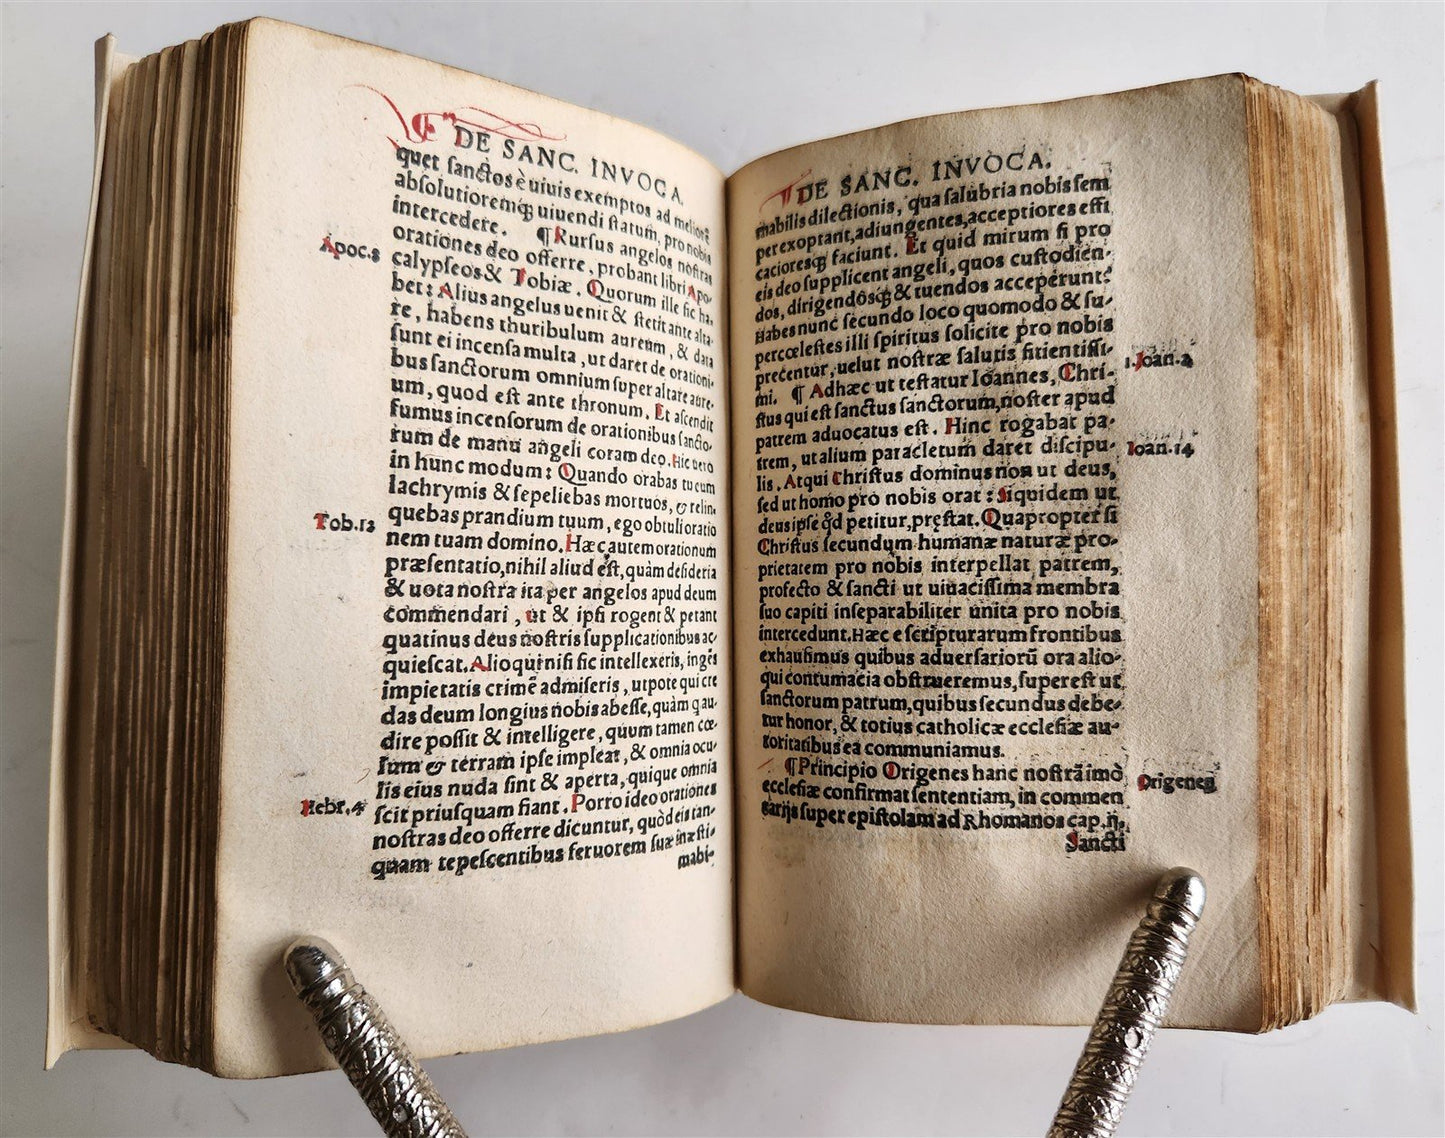 DE SANC. INVOCA.
quet sanctos è uiuis exemptos ad meliorē
absolutioremq́; uiuendi statum, pro nobis
intercedere. ¶ Rursus angelos nostras
orationes deo offerre, probant libri Apo-
Apoc.8
calypseos & Tobiæ. Quorum ille sic ha-
bet: Alius angelus uenit & stetit ante alta-
re, habens thuribulum aureum, & data
sunt ei incensa multa, ut daret de orationi-
bus sanctorum omnium super altare aure-
um, quod est ante thronum. Et ascendit
fumus incensorum de orationibus sancto-
rum de manu angeli coram deo. Hic uero
in hunc modum: Quando orabas tu cum
lachrymis & sepeliebas mortuos, & relin
Tob.12
quebas prandium tuum, ego obtuli oratio
nem tuam domino. Hæc autem orationum
præsentatio, nihil aliud est, quàm desideria
& uota nostra ita per angelos apud deum
commendari, ut & ipsi rogent & petant
quatinus deus nostris supplicationibus ac-
quiescat. Alioqui nisi sic intellexeris, ingēs
impietatis crimē admiseris, utpote qui cre
das deum longius nobis abesse, quàm q̃ au-
dire possit & intelligere, quum tamen cœ-
lum & terram ipse impleat, & omnia ocu-
lis eius nuda sint & aperta, quique omnia
Hebr.4
scit priusquam fiant. Porro ideo orationes
nostras deo offerre dicuntur, quòd eis tan-
quam tepescentibus feruorem suæ inæsti-
mabi-
DE SANC. INVOCA.
mabilis dilectionis, qua salubria nobis sem
per exoptant, adiungentes, acceptiores effi
cacioresq́; faciunt. Et quid mirum si pro
eis deo supplicent angeli, quos custodien-
dos, dirigendósq́; & tuendos acceperunt?
Habes nunc secundo loco quomodo & su-
percœlestes illi spiritus solicite pro nobis
precentur, uelut nostræ salutis sitientissi-
1.Ioan.2
mi. ¶ Adhæc ut testatur Ioannes, Chri-
stus qui est sanctus sanctorum, noster apud
patrem aduocatus est. Hinc rogabat pa-
Ioan.14
trem, ut alium paracletum daret discipu-
lis. Atqui Christus dominus non ut deus,
sed ut homo pro nobis orat: Siquidem ut
deus ipse q̃d petitur, pręstat. Quapropter si
Christus secundum humanæ naturæ pro-
prietatem pro nobis interpellat patrem,
profecto & sancti ut uiuacissima membra
suo capiti inseparabiliter unita pro nobis
intercedunt. Hæc e scripturarum frontibus
exhausimus quibus aduersariorū ora alio-
qui contumacia obstrueremus, superest ut
sanctorum patrum, quibus secundus debe-
tur honor, & totius catholicæ ecclesiæ au-
toritatibus ea communiamus.
¶ Principio Origenes hanc nostrā imò
Origenes
ecclesiæ confirmat sententiam, in commen
tarijs super epistolam ad Rhomanos cap.ij.
Sancti